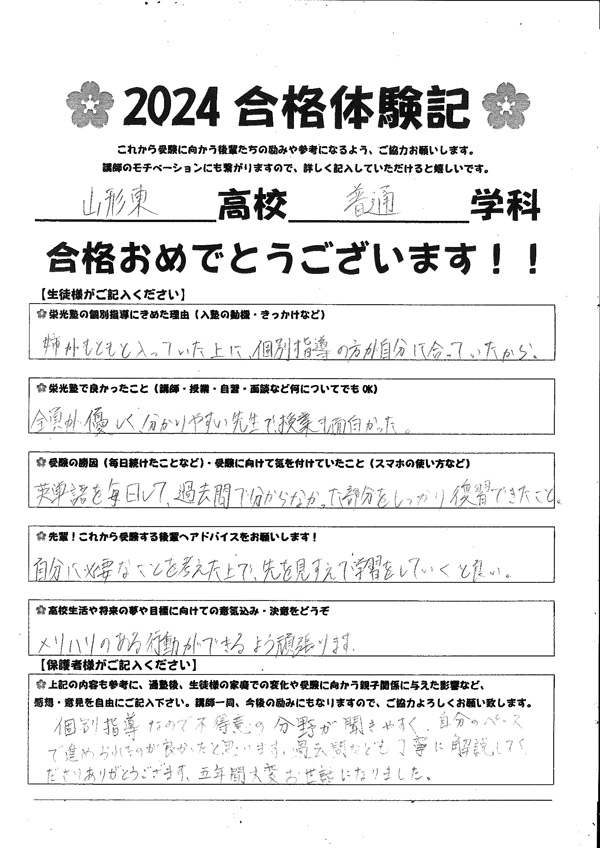 2024 合格体験記
これから受験に向かう後輩たちの励みや参考になるよう、ご協力お願いします。
講師のモチベーションにも繋がりますので、詳しく記入していただけると嬉しいです。
山形東 高校 普通 学科
合格おめでとうございます！！
【生徒様がご記入ください】
栄光塾の個別指導にきめた理由（入塾の動機・きっかけなど）
姉がもともと入っていた上に、個別指導の方が自分に合っていたから。
栄光塾で良かったこと（講師・授業・自習・面談など何についてでもOK）
全員が優しく分かりやすい先生で、授業も面白かった。
受験の勝因（毎日続けたことなど）・受験に向けて気を付けていたこと（スマホの使い方など）
英単語を毎日して、過去問で分からなかった部分をしっかり復習できたこと。
先輩！これから受験する後輩へアドバイスをお願いします！
自分に必要なことを考えた上で、先を見すえて学習をしていくと良い。
高校生活や将来の夢や目標に向けての意気込み・決意をどうぞ
メリハリのある行動ができるよう頑張ります。
【保護者様がご記入ください】
上記の内容も参考に、通塾後、生徒様の家庭での変化や受験に向かう親子関係に与えた影響など、
感想・意見を自由にご記入下さい。講師一同、今後の励みにもなりますので、ご協力よろしくお願い致します。
個別指導なので不得意の分野が聞きやすく、自分のペース
で進められたのが良かったと思います。過去問なども丁寧に解説してく
ださりありがとうござます、五年間大変お世話になりました。